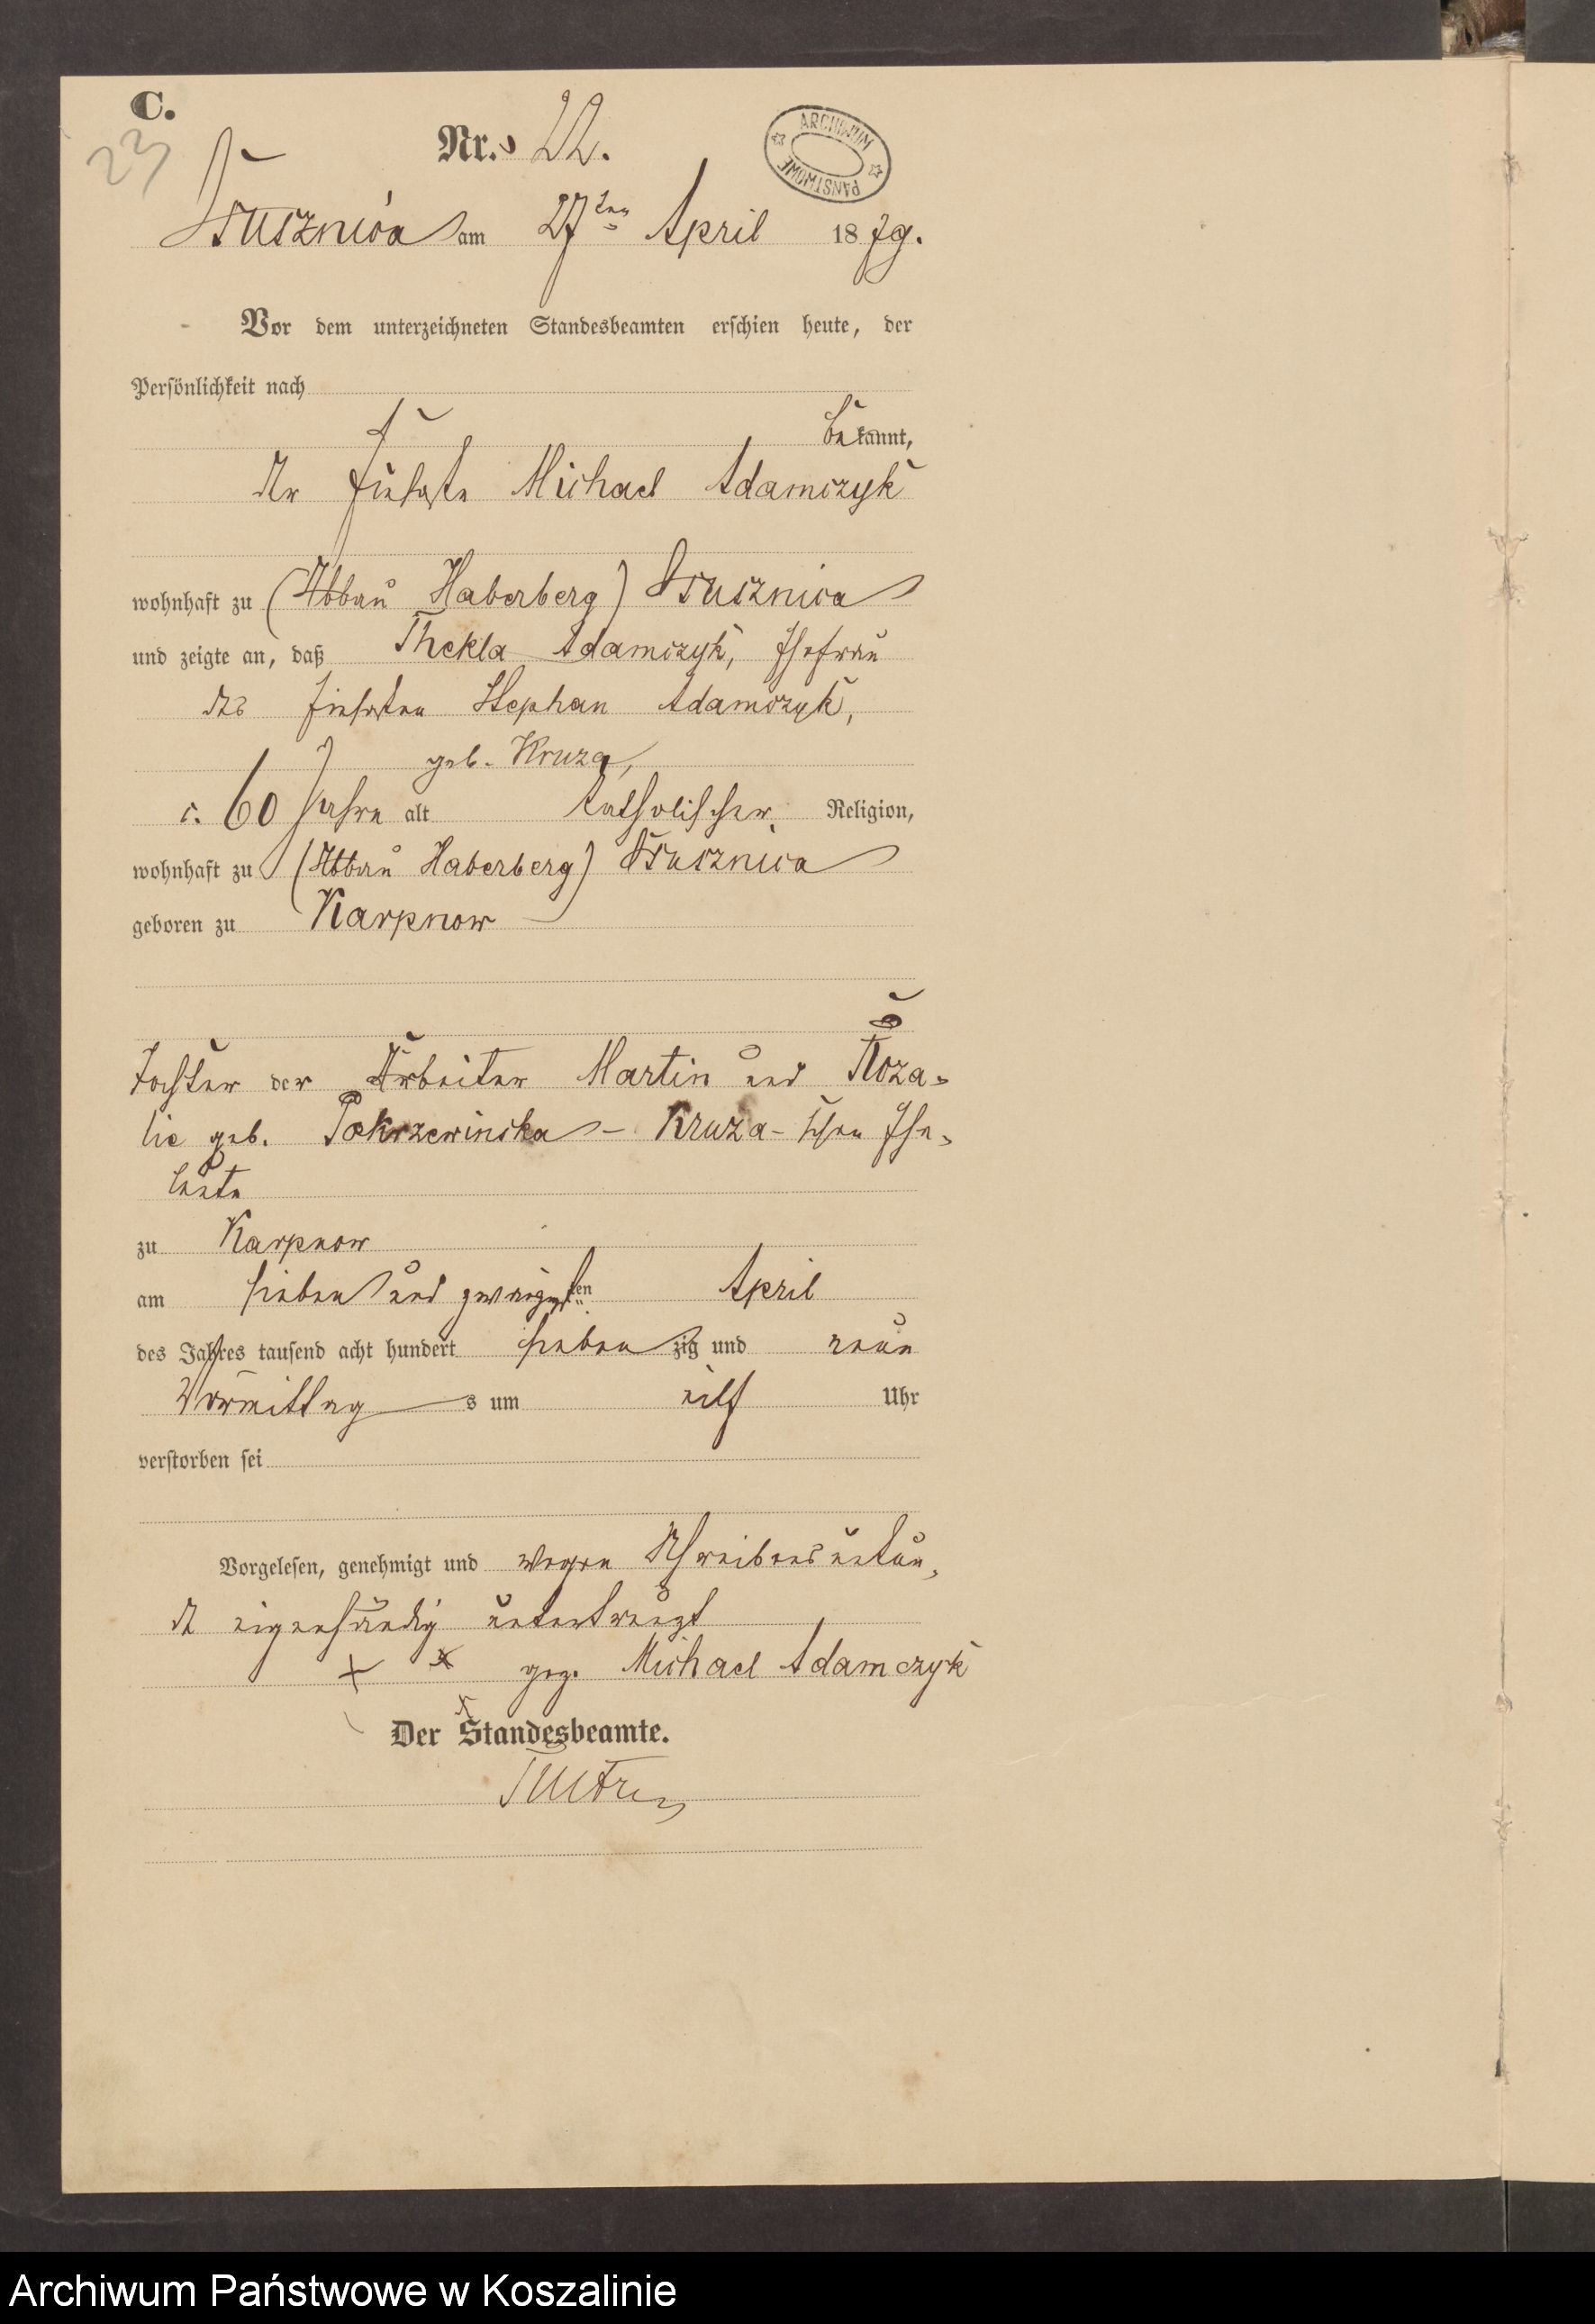 C.
23
Nr. 22.
ARCHIWUM PAŃSTWOWE
Stusznica am 27ten April 1879.
Vor dem unterzeichneten Standesbeamten erschien heute, der
Persönlichkeit nach
bekannt,
der Michael Adamczyk
wohnhaft zu (Abbau Haberberg) Stusznica
und zeigte an, daß Thekla Adamczyk, Ehefrau
des Stephan Adamczyk,
geb. Kruza,
c. 60 Jahre alt katholischer Religion,
wohnhaft zu (Abbau Haberberg) Stusznica
geboren zu Karpnow
Tochter der Arbeiter Martin und Roza-
lie geb. Pokrzewinska - Kruza - schen Ehe-
leute
zu Karpnow
am sieben und zwanzigsten April
des Jahres tausend acht hundert sieben zig und neun
Vormittag s um eilf Uhr
verstorben sei
Vorgelesen, genehmigt und wegen Schreibensunkun-
de eigenhändig unterkreuzt
+ x x gez. Michael Adamczyk
Der Standesbeamte.
Archiwum Państwowe w Koszalinie